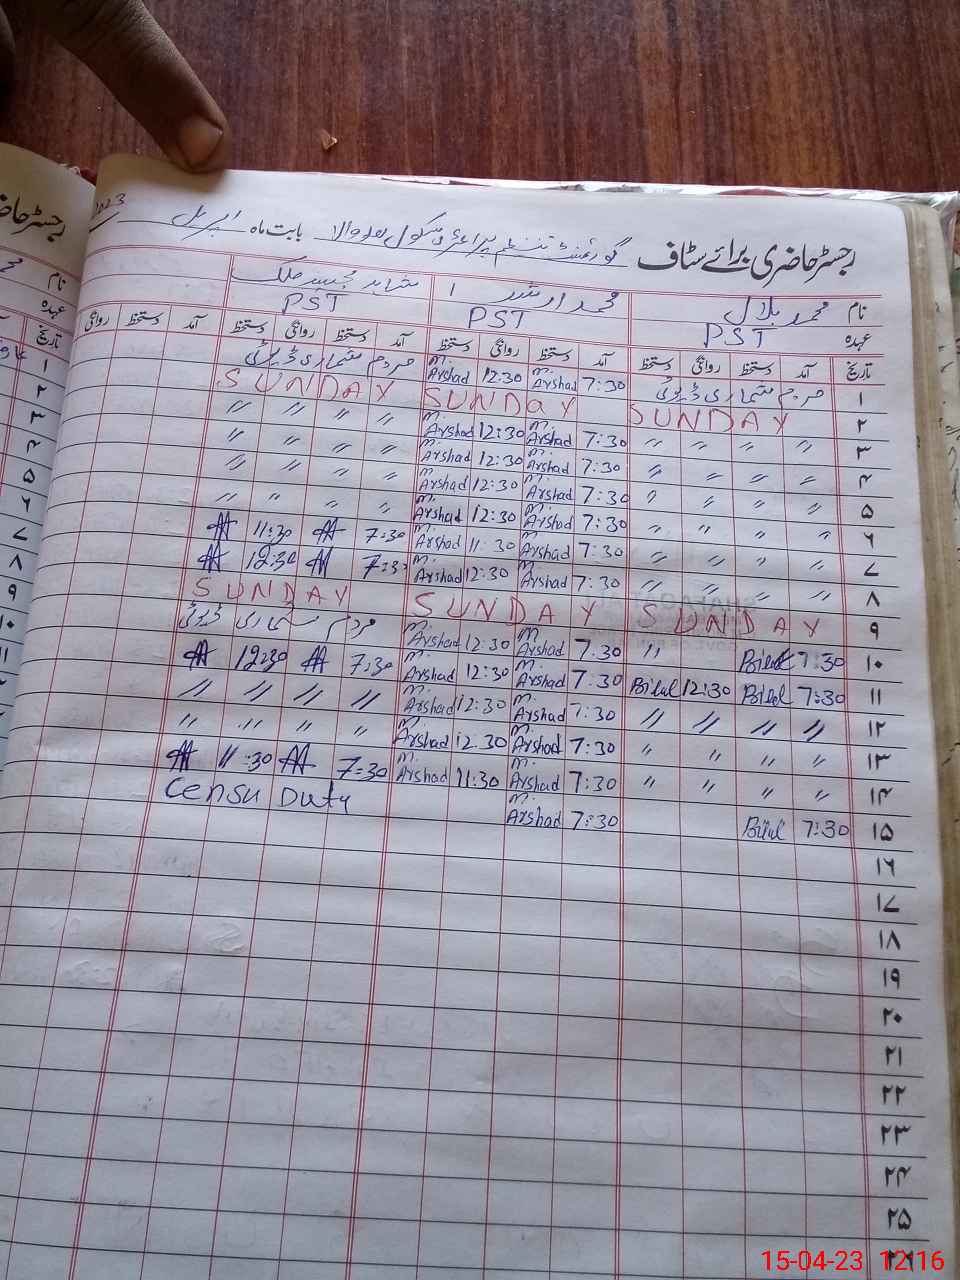 2023
رجسٹر حاضری برائے سٹاف گورنمنٹ پرائمری سکول بابت ماہ اپریل
نام محمد بلال محمد ارشد شاہد ملک
عہدہ PST PST PST
تاریخ آمد دستخط روانگی دستخط آمد دستخط روانگی دستخط آمد دستخط روانگی دستخط آمد دستخط روانگی
۱ مردم شماری ڈیوٹی 7:30 M. Arshad 12:30 M. Arshad مردم شماری ڈیوٹی
۲ SUNDAY SUNDAY SUNDAY
۳ 〃 〃 〃 〃 7:30 M. Arshad 12:30 M. Arshad 〃 〃 〃 〃
۴ 〃 〃 〃 〃 7:30 M. Arshad 12:30 M. Arshad 〃 〃 〃 〃
۵ 〃 〃 〃 〃 7:30 M. Arshad 12:30 M. Arshad 〃 〃 〃 〃
۶ 〃 〃 〃 〃 7:30 M. Arshad 12:30 M. Arshad 〃 〃 〃 〃
۷ 〃 〃 〃 〃 7:30 M. Arshad 11:30 M. Arshad 7:30 11:30
۸ 〃 〃 〃 〃 7:30 M. Arshad 12:30 M. Arshad 7:30 12:30
۹ SUNDAY SUNDAY SUNDAY
۱۰ 7:30 Bilal 〃 7:30 M. Arshad 12:30 M. Arshad مردم شماری ڈیوٹی
۱۱ 7:30 Bilal 12:30 Bilal 7:30 M. Arshad 12:30 M. Arshad 7:30 12:30
۱۲ 〃 〃 〃 〃 7:30 M. Arshad 12:30 M. Arshad 〃 〃 〃 〃
۱۳ 〃 〃 〃 〃 7:30 M. Arshad 12:30 M. Arshad 〃 〃 〃 〃
۱۴ 〃 〃 〃 〃 7:30 M. Arshad 11:30 M. Arshad 7:30 11:30
۱۵ 7:30 Bilal 7:30 M. Arshad Censu Duty
۱۶
۱۷
۱۸
۱۹
۲۰
۲۱
۲۲
۲۳
۲۴
۲۵
15-04-23 12:16